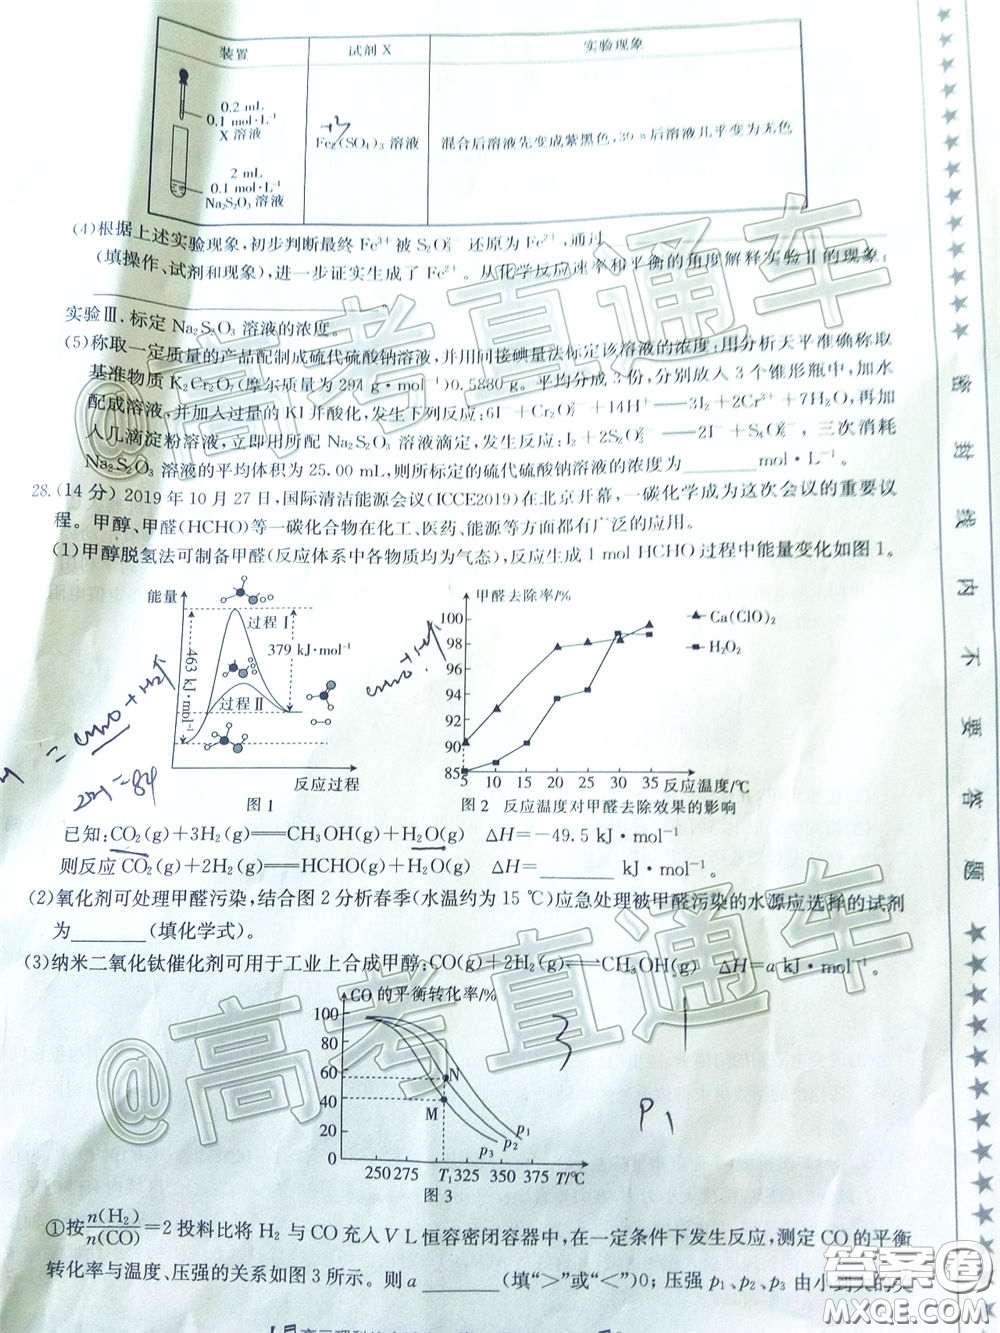 装置 试剂 X 实验现象
0.2 mL
0.1 mol·L⁻¹
X 溶液
2 mL
0.1 mol·L⁻¹
Na₂S₂O₃ 溶液
Fe₂(SO₄)₃ 溶液
混合后溶液先变成紫黑色,30 s后溶液几乎变为无色
(4)根据上述实验现象,初步判断最终 Fe³⁺ 被 S₂O₃²⁻ 还原为 Fe²⁺,通过
(填操作、试剂和现象),进一步证实生成了 Fe²⁺。从化学反应速率和平衡的角度解释实验Ⅱ的现象:
实验Ⅲ、标定 Na₂S₂O₃ 溶液的浓度。
(5)称取一定质量的产品配制成硫代硫酸钠溶液,并用间接碘量法标定该溶液的浓度:用分析天平准确称取
基准物质 K₂Cr₂O₇(摩尔质量为 294 g·mol⁻¹)0.5880 g。平均分成 3 份,分别放入 3 个锥形瓶中,加水
配成溶液,并加入过量的 KI 并酸化,发生下列反应:6I⁻+Cr₂O₇²⁻+14H⁺══3I₂+2Cr³⁺+7H₂O,再加
入几滴淀粉溶液,立即用所配 Na₂S₂O₃ 溶液滴定,发生反应:I₂+2S₂O₃²⁻══2I⁻+S₄O₆²⁻,三次消耗
Na₂S₂O₃ 溶液的平均体积为 25.00 mL,则所标定的硫代硫酸钠溶液的浓度为______mol·L⁻¹。
28.(14 分)2019 年 10 月 27 日,国际清洁能源会议(ICCE2019)在北京开幕,一碳化学成为这次会议的重要议
程。甲醇、甲醛(HCHO)等一碳化合物在化工、医药、能源等方面都有广泛的应用。
(1)甲醇脱氢法可制备甲醛(反应体系中各物质均为气态),反应生成 1 mol HCHO 过程中能量变化如图 1。
能量
过程Ⅰ
379 kJ·mol⁻¹
463 kJ·mol⁻¹
过程Ⅱ
反应过程
图 1
甲醛去除率/%
100
98
96
94
92
90
85
5 10 15 20 25 30 35 反应温度/℃
Ca(ClO)₂
H₂O₂
图 2 反应温度对甲醛去除效果的影响
已知:CO₂(g)+3H₂(g)══CH₃OH(g)+H₂O(g) ΔH=−49.5 kJ·mol⁻¹
则反应 CO₂(g)+2H₂(g)══HCHO(g)+H₂O(g) ΔH=______ kJ·mol⁻¹。
(2)氧化剂可处理甲醛污染,结合图 2 分析春季(水温约为 15 ℃)应急处理被甲醛污染的水源应选择的试剂
为______(填化学式)。
(3)纳米二氧化钛催化剂可用于工业上合成甲醇:CO(g)+2H₂(g)⇌CH₃OH(g) ΔH=a kJ·mol⁻¹。
CO 的平衡转化率/%
100
80
60
40
20
0
N
M
p₁
p₂
p₃
250 275 T₁ 325 350 375 T/℃
图 3
3
P₁
①按n(H₂)/n(CO)=2 投料比将 H₂ 与 CO 充入 V L 恒容密闭容器中,在一定条件下发生反应,测定 CO 的平衡
转化率与温度、压强的关系如图 3 所示。则 a ______(填“>”或“<”)0;压强 p₁、p₂、p₃ 由小到大的关
密 封 线 内 不 要 答 题
@高考直通车
@高考直通车
答案圈
MXQE.COM